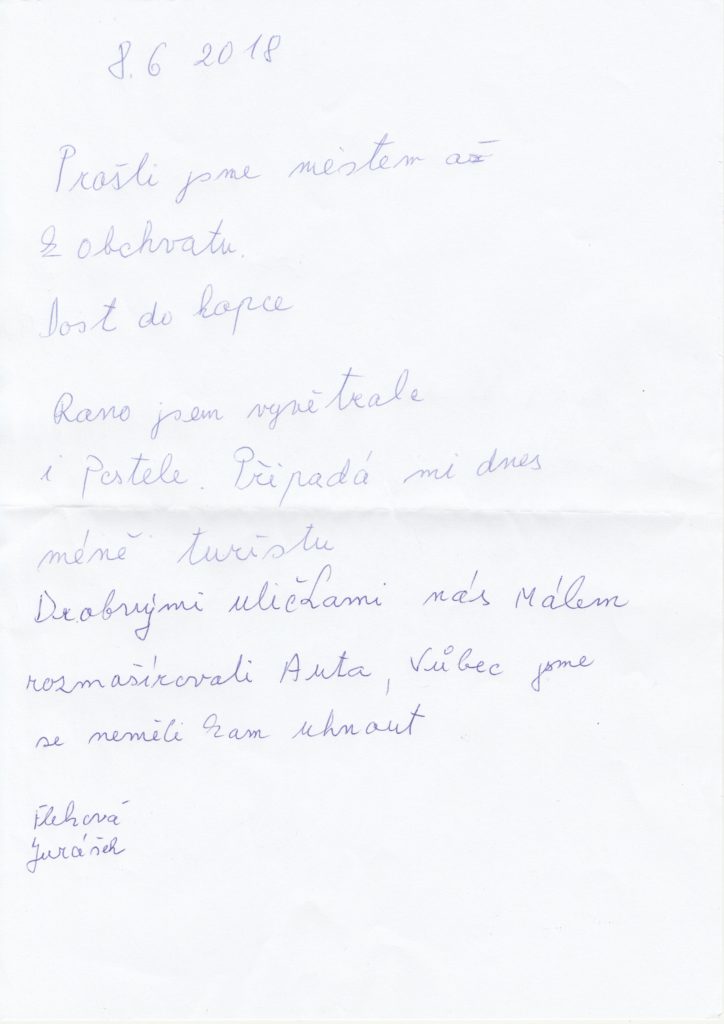 8.6 2018
Prošli jsme městem až
k obchvatu.
Dost do kopce
Rano jsem vyvětrale
i Postele. Připadá mi dnes
méně turistu
Drobnými uličkami nás Málem
rozmašírovali Auta, Vůbec jsme
se neměli kam uhnout
Jurášek